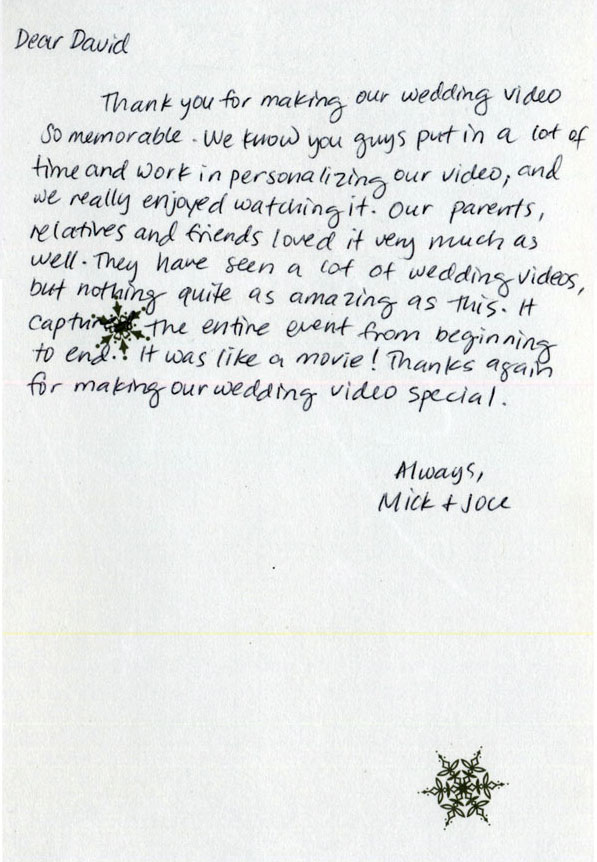 Dear David
Thank you for making our wedding video
so memorable. We know you guys put in a lot of
time and work in personalizing our video, and
we really enjoyed watching it. Our parents,
relatives and friends loved it very much as
well. They have seen a lot of wedding videos,
but nothing quite as amazing as this. It
the entire event from beginning
to end. It was like a movie! Thanks again
for making our wedding video special.
Always,
Mick + Joce